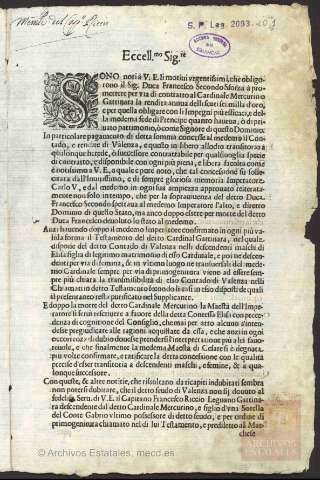 S. P. Leg. 2093.
Eccell.mo Sig.re
SONO noti à V. E. li motivi urgentissimi, che obligorono il Sig. Duca Francesco Secondo Sforza à promettere per via di contratto al Cardinale Mercurino
Gattinara la rendita annua delli scuti sei milla d'oro,
e per quella obligare con li Impegni più efficaci, e della
moderna fede di Prencipe quanto haueua, ò di privato patrimonio, ò come Signore di questo Dominio.
In particolare pagamento di detta somma concesse al medemo il Contado, e rendite di Valenza, e questo in libero allodio transitorio à
qualonque herede, ò successore contrattabile per qualsivoglia specie
di contratto, e disponibile con ogni più piena, e libera facoltà come
è notissimo à V. E, a quale è pure noto, che tal concessione fù sollevata dall'Invittissimo, e di sempre gloriosa memoria Imperatore
Carlo V, e dal medemo in ogni sua ampiezza approvato reiteratamente non solo in tempo, che per la sopravivenza del detto Duca
Francesco Secondo spettava al medemo Imperatore l'alto, e diretto
Dominio di questo Stato, ma anco doppo che per morte del detto
Duca Francesco devoluto lo stato al medemo.
Anzi havendo doppo il medemo Imperatore confirmato in ogni più valida forma il Testamento del detto Cardinal Gattinara, nel quale
dispone del detto Contado di Valenza nelli descendenti maschi di
Elisa figlia di legitimo matrimonio di esso Cardinale, e poi ne descendenti per via di femina, si in ultimo luogo ne transversali del medemo
Cardinale sempre per via di primogenitura viene ad essere sempre più chiara la transmissibilità di esso Contado di Valenza nella
Chiamati in detto Testamento secondo la serie in esso disposte de quali
il presentaneo resta purificato nel Supplicante.
E doppo la morte del detto Cardinale Mercurino la Maestà dell'Imperatore si servì rescrivere a favore della Contessa Elisa con precedenza di cognitione del Consiglio, che mai per atto alcuno s'intendesse pregiudicare alle ragioni acquistate da essa, e che anzi in ogni
occorrenza di dubio dovesse prendersi l'interpretatione più à lei favorevole, e che finalmente la medema Maestà di Cesare si è degnata,
più volte confirmare, e ratificare la detta concessione con le qualità
precise d'esser transitoria a descendenti maschi, e femine, & a qualonque successore.
Con queste, & altre notitie, che risoltano da ricapiti indubitati sembra
non potersi dubitare, che il detto feudo di Valenza non sij dovuto al
fedeliss. Serv. di V. E. il Capitano Francesco Riccio Legnano Gattinara descendente dal detto Cardinale Mercurino, e figlio d'una Sorella
del Conte Gabrio ultimo possessore di detto feudo, e per ordine di
primogenitura chiamato nel di lui Testamento, e prediletto al Marchese
© Archivos Estatales, mecd.es
ARCHIVOS ESTATALES